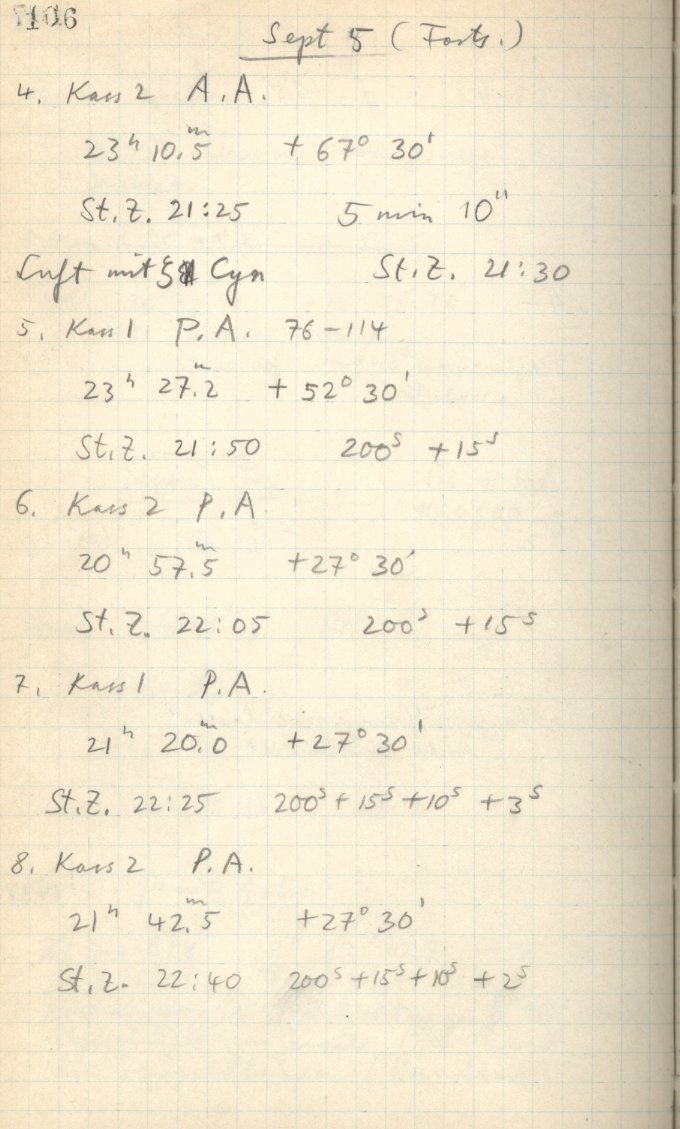 106
Sept 5 (Forts.)
4. Kass 2 A.A.
23ʰ 10.5ᵐ +67° 30'
St.Z. 21:25 5 min 10"
Luft mit ξ Cyn St.Z. 21:30
5. Kass 1 P.A. 76-114
23ʰ 27.2ᵐ +52° 30'
St.Z. 21:50 200ˢ +15ˢ
6. Kass 2 P.A.
20ʰ 57.5ᵐ +27° 30'
St.Z. 22:05 200ˢ +15ˢ
7. Kass 1 P.A.
21ʰ 20.0ᵐ +27° 30'
St.Z. 22:25 200ˢ + 15ˢ +10ˢ +3ˢ
8. Kass 2 P.A.
21ʰ 42.5ᵐ +27° 30'
St.Z. 22:40 200ˢ +15ˢ +10ˢ +2ˢ